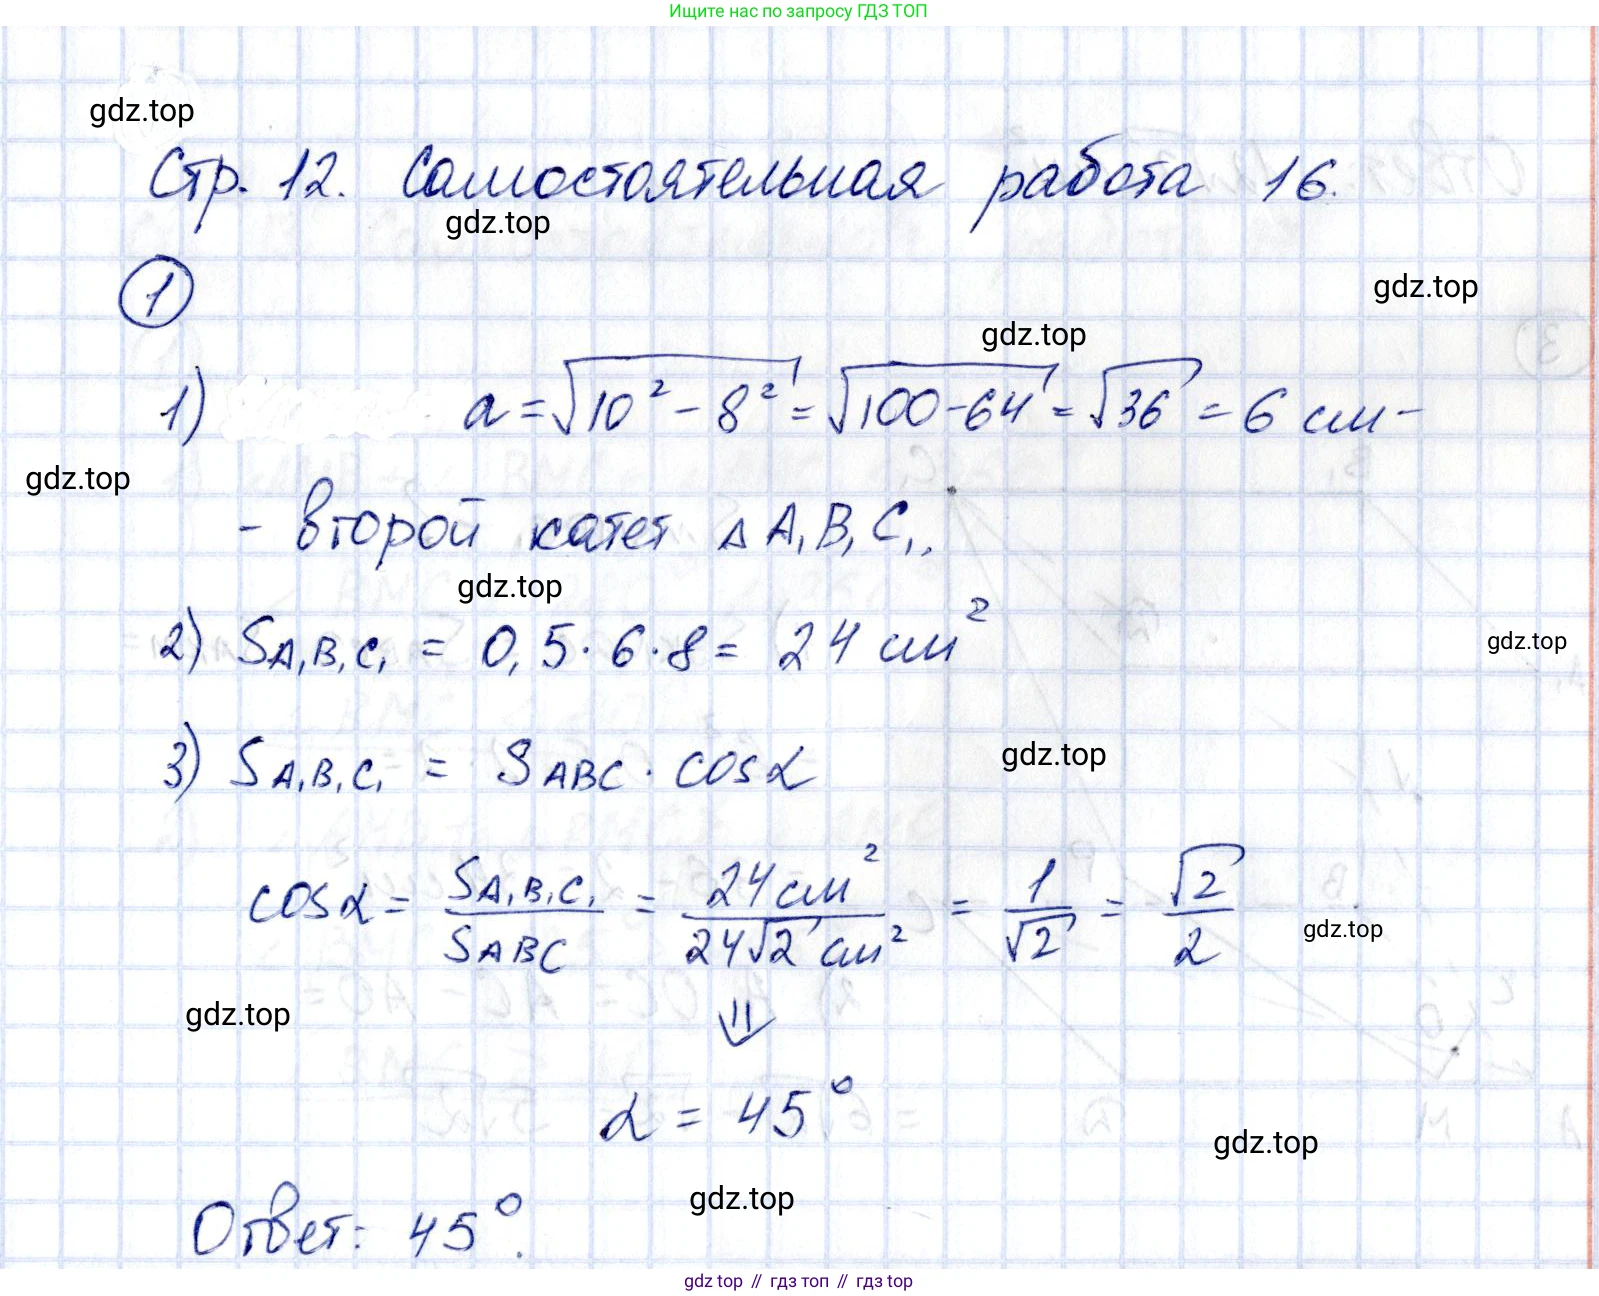 Ищите нас по запросу ГДЗ ТОП
gdz.top
Стр. 12. Самостоятельная работа 16.
gdz.top
1
gdz.top
gdz.top
1) a = √(10² - 8²) = √(100-64) = √36 = 6 см -
gdz.top
- второй катет △ A₁B₁C₁.
gdz.top
2) S A₁B₁C₁ = 0,5 · 6 · 8 = 24 см²
gdz.top
3) S A₁B₁C₁ = S ABC · cos α
gdz.top
cos α = S A₁B₁C₁ / S ABC = 24 см² / 24√2 см² = 1/√2 = √2/2
gdz.top
gdz.top
⇓
α = 45°
gdz.top
gdz.top
Ответ: 45°.
gdz top // гдз топ // gdz top